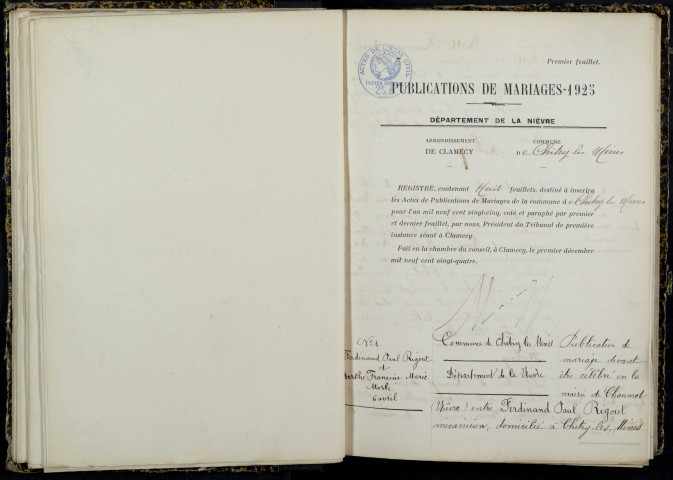 Premier feuillet.
ACTES DE L'ETAT CIVIL
PUBLICATIONS DE MARIAGES-1925
DÉPARTEMENT DE LA NIÈVRE
ARRONDISSEMENT
DE CLAMECY
COMMUNE
DE Chitry les Mines
REGISTRE, contenant Huit feuillets, destiné à inscrire
les Actes de Publications de Mariages de la commune de Chitry les Mines
pour l'an mil neuf cent vingt-cinq, coté et paraphé par premier
et dernier feuillet, par nous, Président du Tribunal de première
instance séant à Clamecy.
Fait en la chambre du conseil, à Clamecy, le premier décembre
mil neuf cent vingt-quatre.
N° 1
Ferdinand Paul Rigout
et
Berthe Francine Marie
6 avril
Commune de Chitry les Mines
Département de la Nièvre
Publication de
mariage devant
être célébré en la
mairie de Chaumot
(Nièvre) entre Ferdinand Paul Rigout
mécanicien, domicilié à Chitry-les-Mines